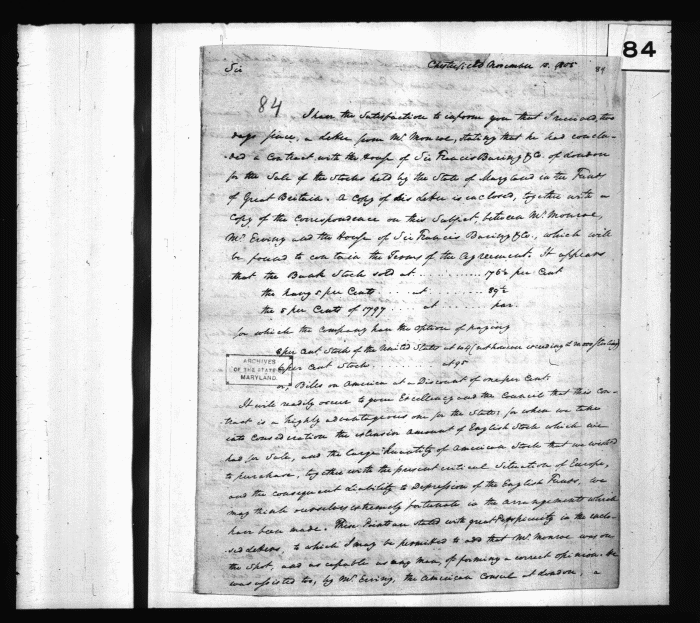 84
Sir Chesterfield November 10. 1805 84
84
I have the Satisfaction to inform you that I received, two
days since, a Letter from Mr Monroe, stating that he had conclu-
-ded a Contract with the House of Sir Francis Baring & Co. of London
for the Sale of the Stocks held by the State of Maryland in the Funds
of Great Britain. A Copy of his Letter is inclosed, together with a
Copy of the Correspondence on this Subject between Mr Monroe,
Mr Erving and the House of Sir Francis Baring & Co, which will
be found to contain the Terms of the Agreement. It appears
that the Bank Stock sold at .............. per Cent
the navy 5 per Cents .... at ........... 89½
the 5 per Cents of 1797 .... at ........... par.
for which the Company have the option of paying
8 per Cent Stock of the United States at (not however exceeding Sterling)
6 per Cent Stock ........... at 95
or Bills on America at a Discount of one per Cent.
It will readily occur to your Excellency and the Council that this Con-
tract is a highly advantageous one for the State; for when we take
into Consideration the extensive amount of English Stock which we
had for Sale, and the large Quantity of American Stock that we wished
to purchase, together with the present critical Situation of Europe,
and the consequent Liability to Depression of the English Funds, we
may think ourselves extremely fortunate in the arrangements which
have been made. These Points are stated with great Perspicuity in the inclo-
sed Letters, to which I may be permitted to add that Mr Monroe was on
the Spot, and as capable as any man, of forming a correct opinion. He
was assisted too, by Mr Erving, the American Consul at London, a
ARCHIVES
OF THE STATE
MARYLAND.